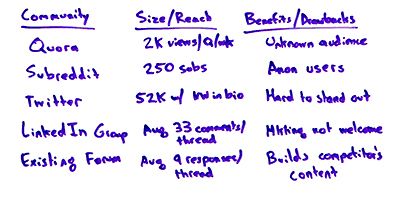 Community Size/Reach Benefits/Drawbacks
Quora 2K views/Q/wk Unknown audience
Subreddit 250 subs Anon users
Twitter 52K w/ KW in bio Hard to stand out
LinkedIn Group Avg 33 comments/ Mkting not welcome
thread
Existing Forum Avg 9 responses/ Builds competitor's
thread content